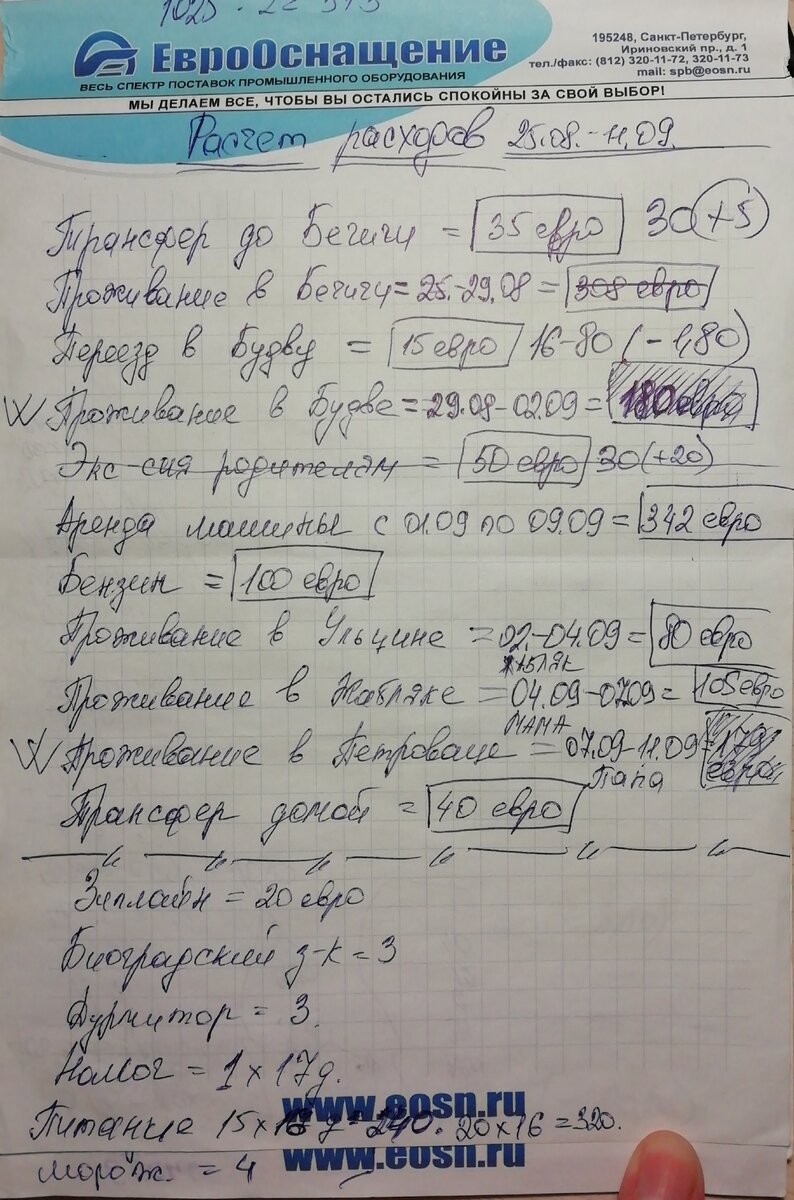 ЕвроОснащение
ВЕСЬ СПЕКТР ПОСТАВОК ПРОМЫШЛЕННОГО ОБОРУДОВАНИЯ
195248, Санкт-Петербург,
Ириновский пр., д. 1
тел./факс: (812) 320-11-72, 320-11-73
mail: spb@eosn.ru
МЫ ДЕЛАЕМ ВСЕ, ЧТОБЫ ВЫ ОСТАЛИСЬ СПОКОЙНЫ ЗА СВОЙ ВЫБОР!
Расчет расходов 25.08.-11.09.
Трансфер до Бечичи = 35 евро 30 (+5)
Проживание в Бечичи = 25.-29.08 = 308 евро
Переезд в Будву = 15 евро 16-80 (-1,80)
Проживание в Будве = 29.08-02.09 = 180 евро
Экс-сия родителям = 50 евро 30 (+20)
Аренда машины с 01.09 по 09.09 = 342 евро
Бензин = 100 евро
Проживание в Ульцине = 02.-04.09 = 80 евро
ЖАБЛЯК
Проживание в Жабляке = 04.09-07.09 = 105 евро
МАМА
Проживание в Петроваце = 07.09-11.09 = 179 евро
Папа
Трансфер домой = 40 евро
Зиплайн = 20 евро
Биоградский з-к = 3
Дурмитор = 3.
Налог = 1 х 17 д.
www.eosn.ru
Питание 15 х 16 д = 240. 20 х 16 = 320.
Морож. = 4
www.eosn.ru